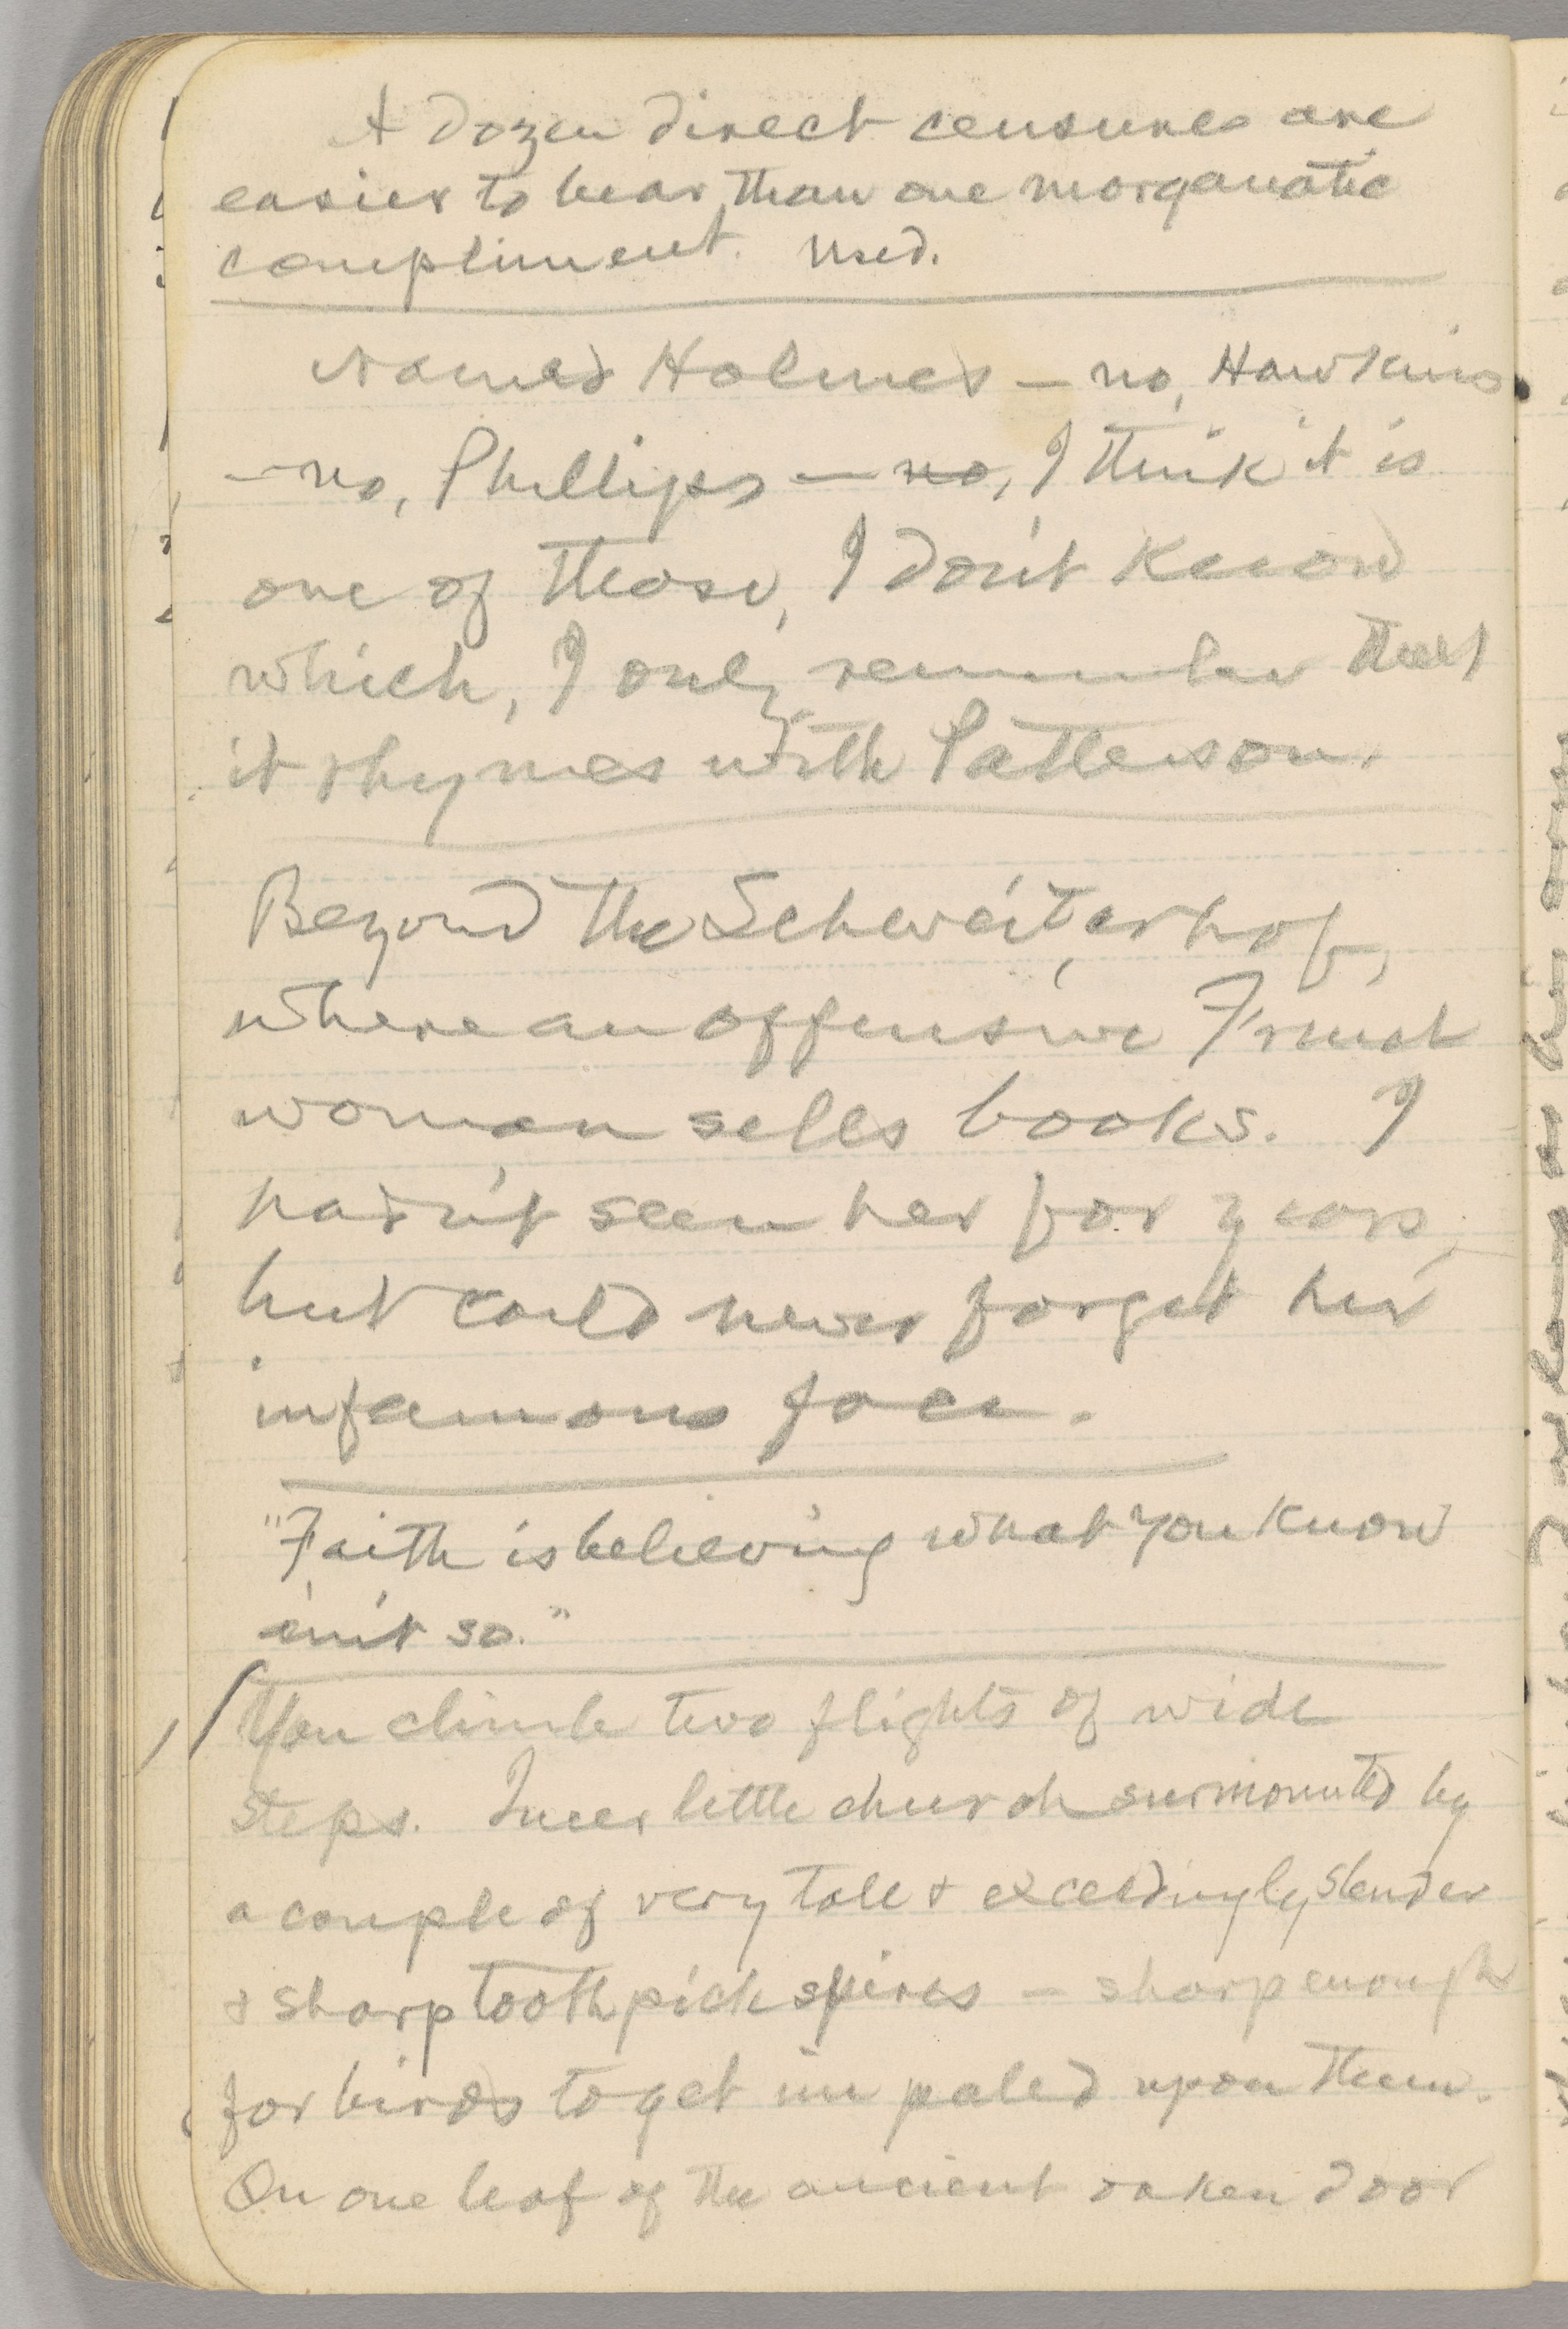 A dozen direct censures are
easier to bear than one morganatic
compliment. Used.
Named Holmes — no, Hawkins
— no, Phillips — no, I think it is
one of those, I don't know
which, I only remember that
it rhymes with Patterson.
Beyond the Schweitzerhof,
where an offensive French
woman sells books. I
hadn't seen her for years,
but could never forget her
infamous face.
"Faith is believing what you know
ain't so."
You climb two flights of wide
steps. Queer little church surmounted by
a couple of very tall & exceedingly slender
& sharp toothpick spires — sharp enough
for birds to get impaled upon them.
On one leaf of the ancient oaken door